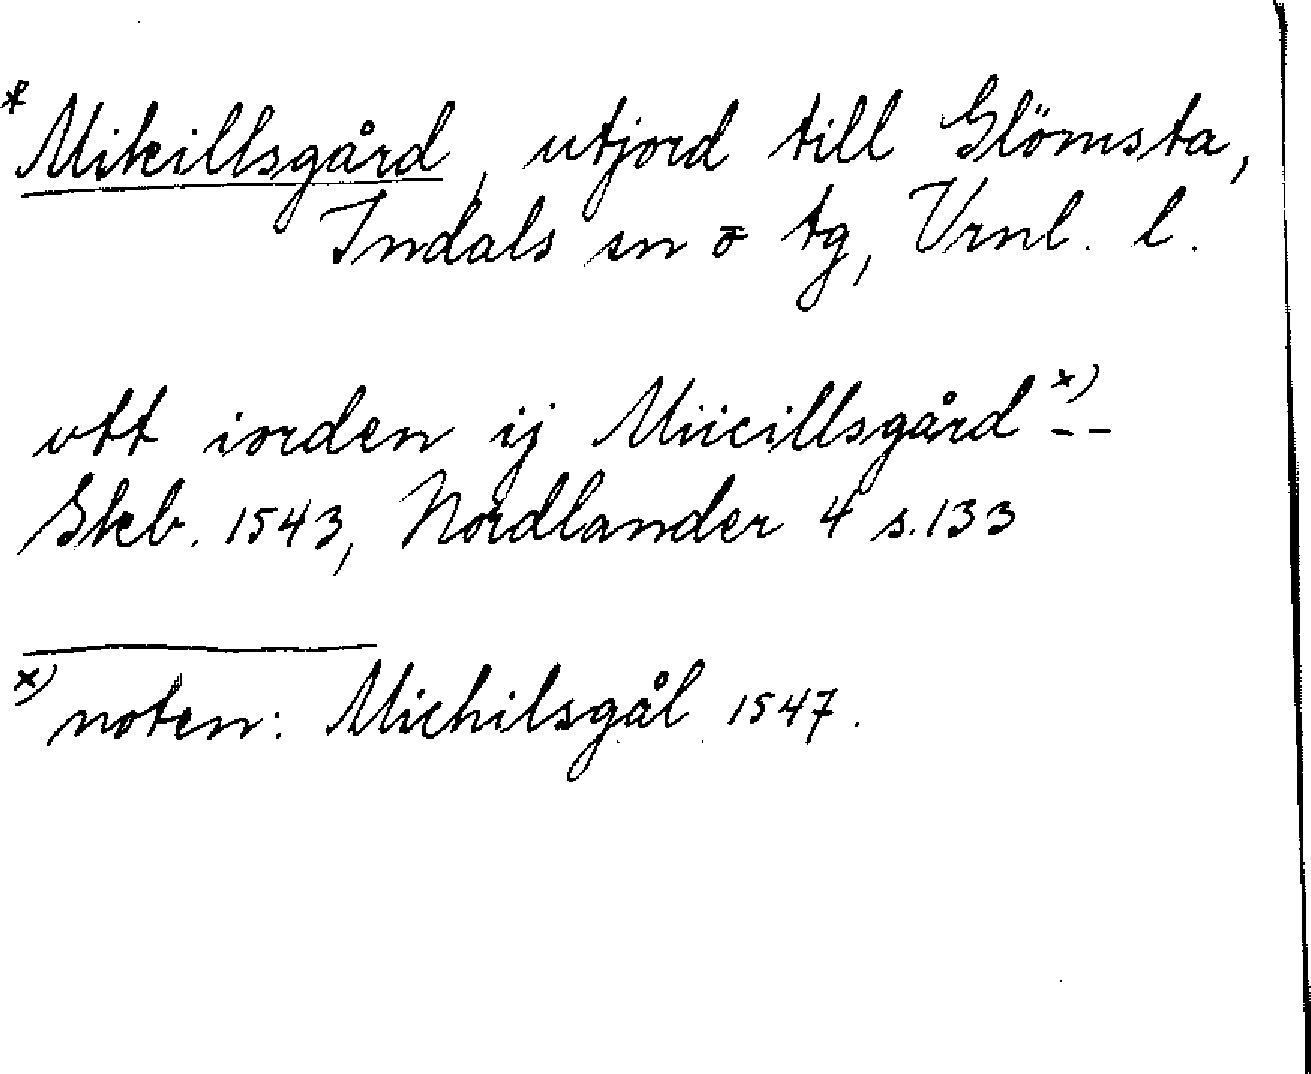 * Mikillsgård, utjord till Glömsta,
Indals sn o tg, Vrnl. l.
vtt iorden ij Miicillsgård x) --
Skb. 1543, Nordlander 4 s. 133
x) noten: Michilsgål 1547.